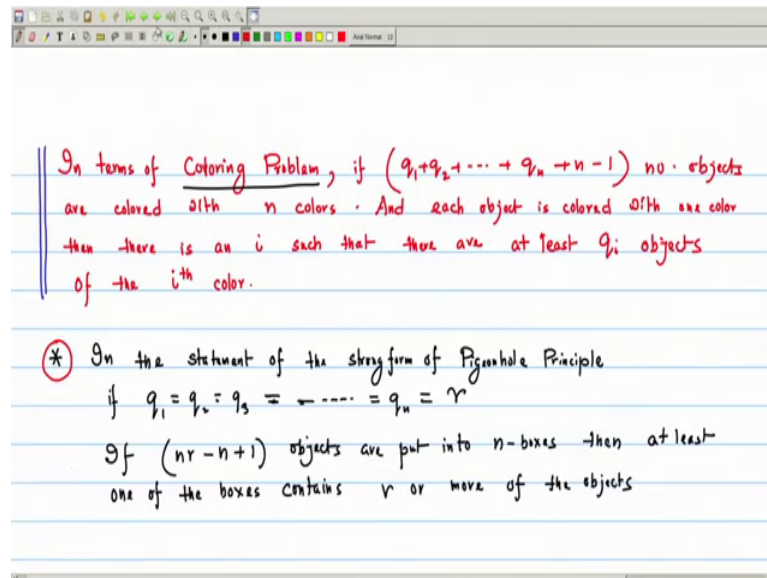 In terms of Coloring Problem, if (q₁+q₂+ --- + qₙ +n-1) no. objects
are colored with n colors. And each object is colored with one color
then there is an i such that there are at least qᵢ objects
of the iᵗʰ color.
* In the statement of the strong form of Pigeonhole Principle
if q₁ = q₂ = q₃ = ----- = qₙ = r
If (nr - n + 1) objects are put into n-boxes then at least
one of the boxes contains r or more of the objects